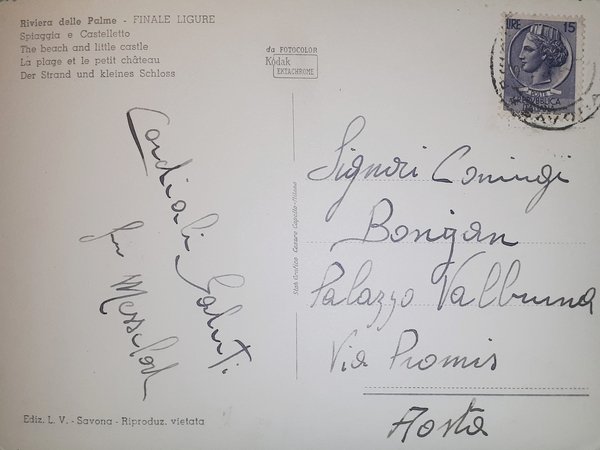 Riviera delle Palme - FINALE LIGURE
Spiaggia e Castelletto
The beach and little castle
La plage et le petit château
Der Strand und kleines Schloss
da FOTOCOLOR
Kodak
EKTACHROME
LIRE 15
POSTE
REPUBBLICA
ITALIANA
SAVONA
Cordiali Saluti
Stab. Grafico Cesare Capello - Milano
Signori Coniugi
Bongan
Palazzo Valbruna
Via Promis
Aosta
Ediz. L. V. - Savona - Riproduz. vietata